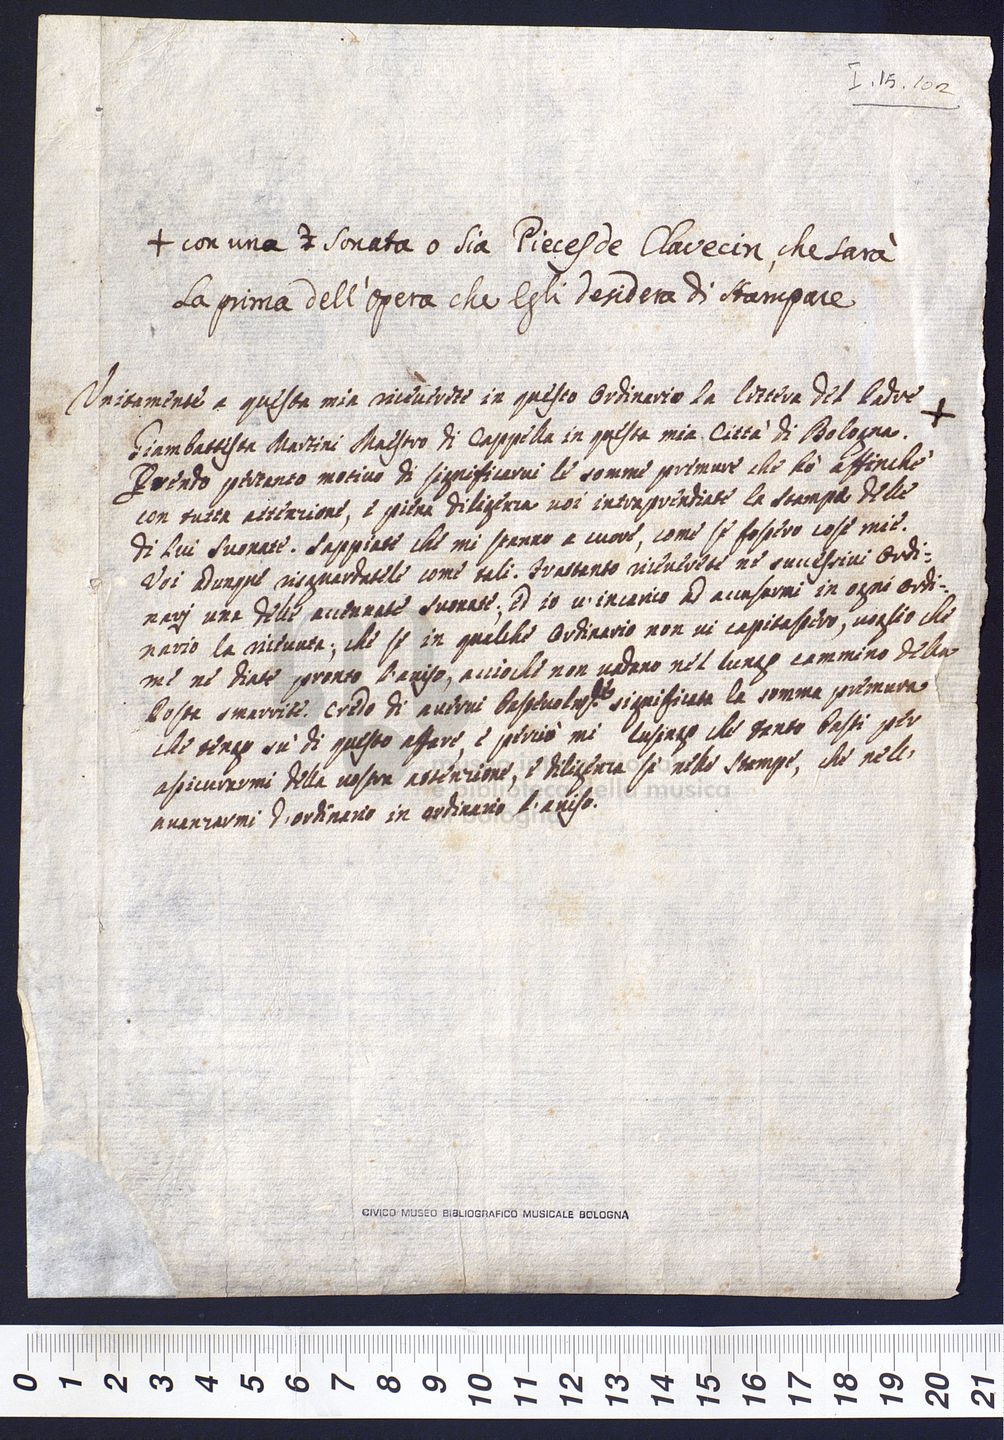 I.15.102
+ con una Sonata o sia Pieces de Clavecin, che sarà
La prima dell'opera che Egli desidera di stampare
Unitamente a questa mia riceverete in questo Ordinario la lettera del Padre +
Giambattista Martini Maestro di Cappella in questa mia Città di Bologna.
Prendo pertanto motivo di significarvi le somme premure che hò affinché
con tutta attenzione, e piena diligenza voi intraprendiate la stampa delle
di lui Suonate. Sappiate che mi stanno a cuore, come se fossero cose mie.
Voi dunque risguardatele come tali. Frattanto riceverete ne successivi Ordi=
narj una delle accennate Suonate; ed io v'incarico ad accusarmi in ogni Ordi=
nario la ricevuta; che se in qualche Ordinario non vi capitassero, voglio che
me ne diate pronto l'aviso, accioché non vadano nel lungo cammino della
Posta smarrite. Credo di avervi significata la somma premura
che tengo sù di questo affare, e perciò mi lusingo che tanto basti per
assicurarmi della vostra attenzione, e diligenza sì nelle Stampe, che nell'
avanzarmi d'ordinario in ordinario l'aviso.
museo internazionale
e biblioteca della musica
di bologna
CIVICO MUSEO BIBLIOGRAFICO MUSICALE BOLOGNA
0 1 2 3 4 5 6 7 8 9 10 11 12 13 14 15 16 17 18 19 20 21